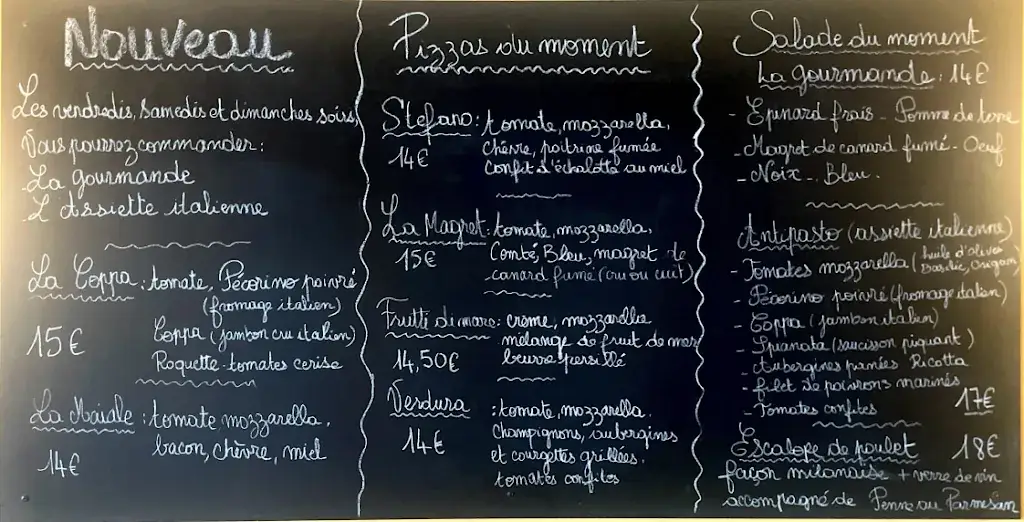 Nouveau
Les vendredis, samedis et dimanches soirs,
Vous pourrez commander:
- La gourmande
- L'Assiette italienne
La Coppa: tomate, Pécorino poivré
(fromage italien)
15€
Coppa (jambon cru italien)
Roquette - tomates cerise
La Maiale: tomate mozzarella,
bacon, chèvre, miel
14€
Pizzas du moment
Stefano: tomate, mozzarella,
14€
chèvre, poitrine fumée
confit d'échalotte au miel
La Magret: tomate, mozzarella,
15€
Comté, Bleu, magret de
canard fumé (cru ou cuit)
Frutti di mare: crème, mozzarella
mélange de fruit de mer
14,50€
beurre persillé
Verdura
: tomate, mozzarella,
14€
Champignons, aubergines
et courgettes grillées,
tomates confites
Salade du moment
La gourmande: 14€
- Epinard frais - Pomme de terre
- Magret de canard fumé - Oeuf
- Noix - Bleu.
Antipasto (assiette italienne)
- Tomates mozzarella (huile d'olives
Basilic, Origan)
- Pécorino poivré (fromage italien)
- Coppa (jambon italien)
- Spianata (saucisson piquant)
- Aubergines panées Ricotta
- filet de poivrons marinés
- Tomates confites
17€
Escalope de poulet 18€
façon milanaise + verre de vin
accompagné de Penne au Parmesan